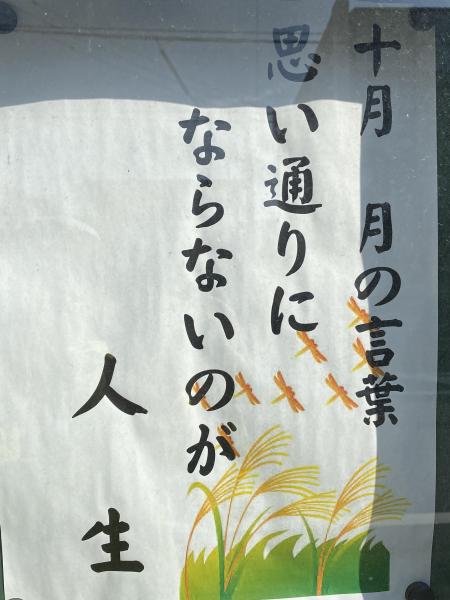 十月　月の言葉
思い通りに
ならないのが
人生